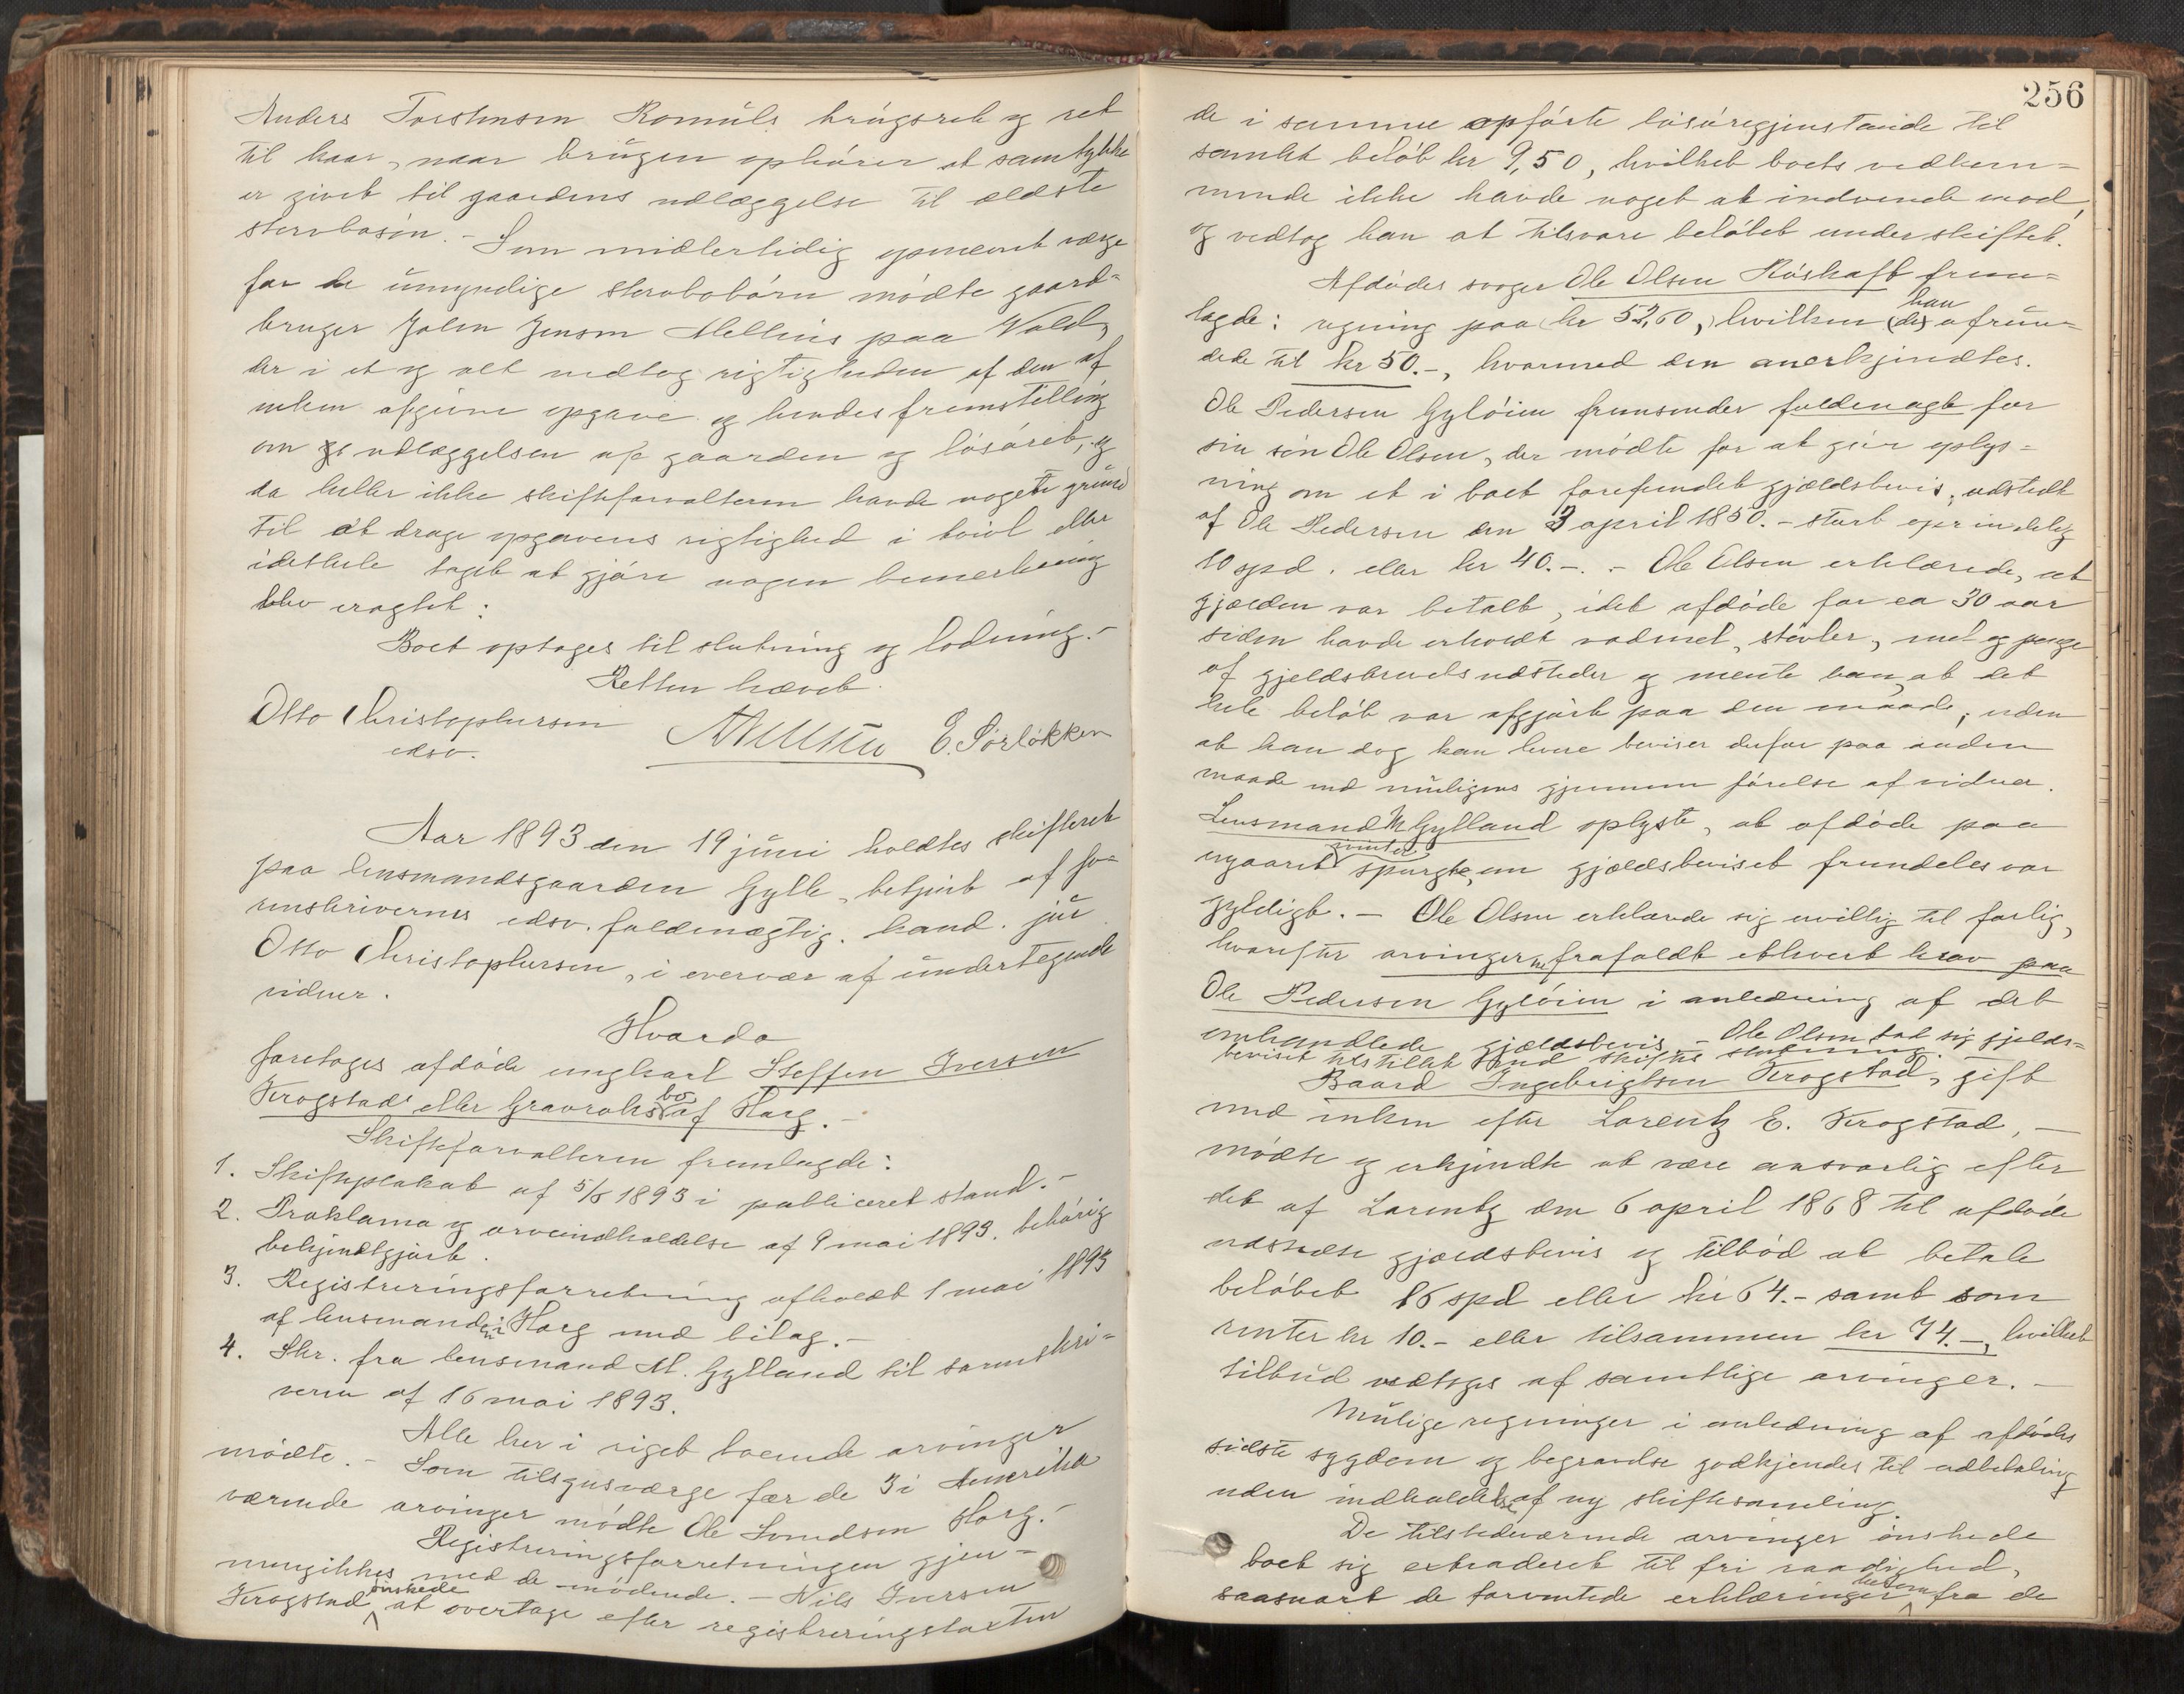 Anders Torstensen Romuls brugsret og ret
til kaar, naar brugen ophører at samtykke
er givet til gaardens udlæggelse til ældste
stervbosøn. - Som midlertidig opnævnt værge
for de umyndige stervbobørn mødte gaard-
bruger John Jensen Melhus paa Vold,
der i et og alt vedtog rigtigheden af den af
enken afgivne opgave og hendes fremstilling
om udlæggelsen af gaarden og løsøret, og
da heller ikke skifteforvalteren havde nogen grund
til at drage opgavens rigtighed i tvivl eller
idethele taget at gjøre nogen bemerkning
blev eragtet:
Boet optages til slutning og lodning. -
Retten hævet.
Otto Christophersen E. Sørløkken
edsv.
Aar 1893 den 19 juni holdtes skifteret
paa lensmandsgaarden Gylle, betjent af so-
renskriverens edsv. fuldmægtig, kand. jur
Otto Christophersen, i overvær af undertegnede
vidner.
Hvorda
foretoges afdøde ungkarl Steffen Iversen
Krogstads eller Gravraks bo af Horg. -
Skifteforvalteren fremlagde:
1. Skifteplakat af 5/5 1893 i publiceret stand. -
2. Proklama og arveindkaldelse af 9 mai 1893. behørig
bekjendtgjort.
3. Registreringsforretning afholdt 1 mai 1893
af lensmanden i Horg med bilag. -
4. Skr. fra lensmand M. Gylland til sorenskri-
veren af 16 mai 1893.
Alle her i riget boende arvinger
mødte. - Som tilsynsværge for de 3 i Amerika
værende arvinger mødte Ole Horg. -
Registreringsforretningen gjen-
nemgikkes med de mødende. - Nils Iversen
Krogstad ønskede at overtage efter registreringstaxten
256
de i samme opførte løsøregjenstande til
samlet beløb kr 9,50, hvilket boets vedkom-
mende ikke havde noget at indvende mod,
og vedtog han at tilsvare beløbet under skiftet.
Afdødes svoger Ole Olsen Røskaft frem-
lagde: regning paa kr 52,60, hvilken (des) han afrun-
dede til kr 50.-, hvormed den anerkjendtes.
Ole Pedersen Gyløien fremsender fuldmagt for
sin søn Ole Olsen, der mødte for at give oplys-
ning om et i boet forefundet gjældsbevis, udstedt
af Ole Pedersen den 3 april 1850. - stort oprindelig
10 spd. eller kr 40.-. - Ole Olsen erklærede, at
gjælden var betalt, idet afdøde for ca 30 aar
siden havde erholdt vadmel, støvler, mel og penge
af gjeldsbrevets udsteder og mente han, at det
hele beløb var afgjort paa den maade, uden
at han dog kan levere beviser derfor paa anden
maade end muligens gjennem førelse af vidner.
Lensmand M Gylland oplyste, at afdøde paa
spurgte, om gjældsbeviset fremdeles var
gyldigt. - Ole Olsen erklærede sig uvillig til forlig,
hvorefter arvingerne frafaldt ethvert krav paa
Ole Pedersen Gyløien i anledning af det
omhandlede gjældsbevis. - Ole Olsen bad sig gjelds-
beviset tilstillet ved skiftets slutning.
Baard Ingebrigtsen Krogstad, gift
med enken efter Lorentz E. Krogstad, -
mødte og erkjendte at være ansvarlig efter
det af Lorentz den 6 april 1868 til afdøde
udstedte gjældsbevis og tilbød at betale
beløbet 16 spd eller kr 64.- samt som
renter kr 10.- eller tilsammen kr 74.-, hvilket
tilbud vedtoges af samtlige arvinger. -
Mulige regninger i anledning af afdødes
sidste sygdom og begravelse godkjendes til udbetaling
uden indkaldelse af ny skiftesamling.
De tilstedeværende arvinger ønskede
boet sig extraderet til fri raadighed,
saasnart de forventede erklæringer herom fra de